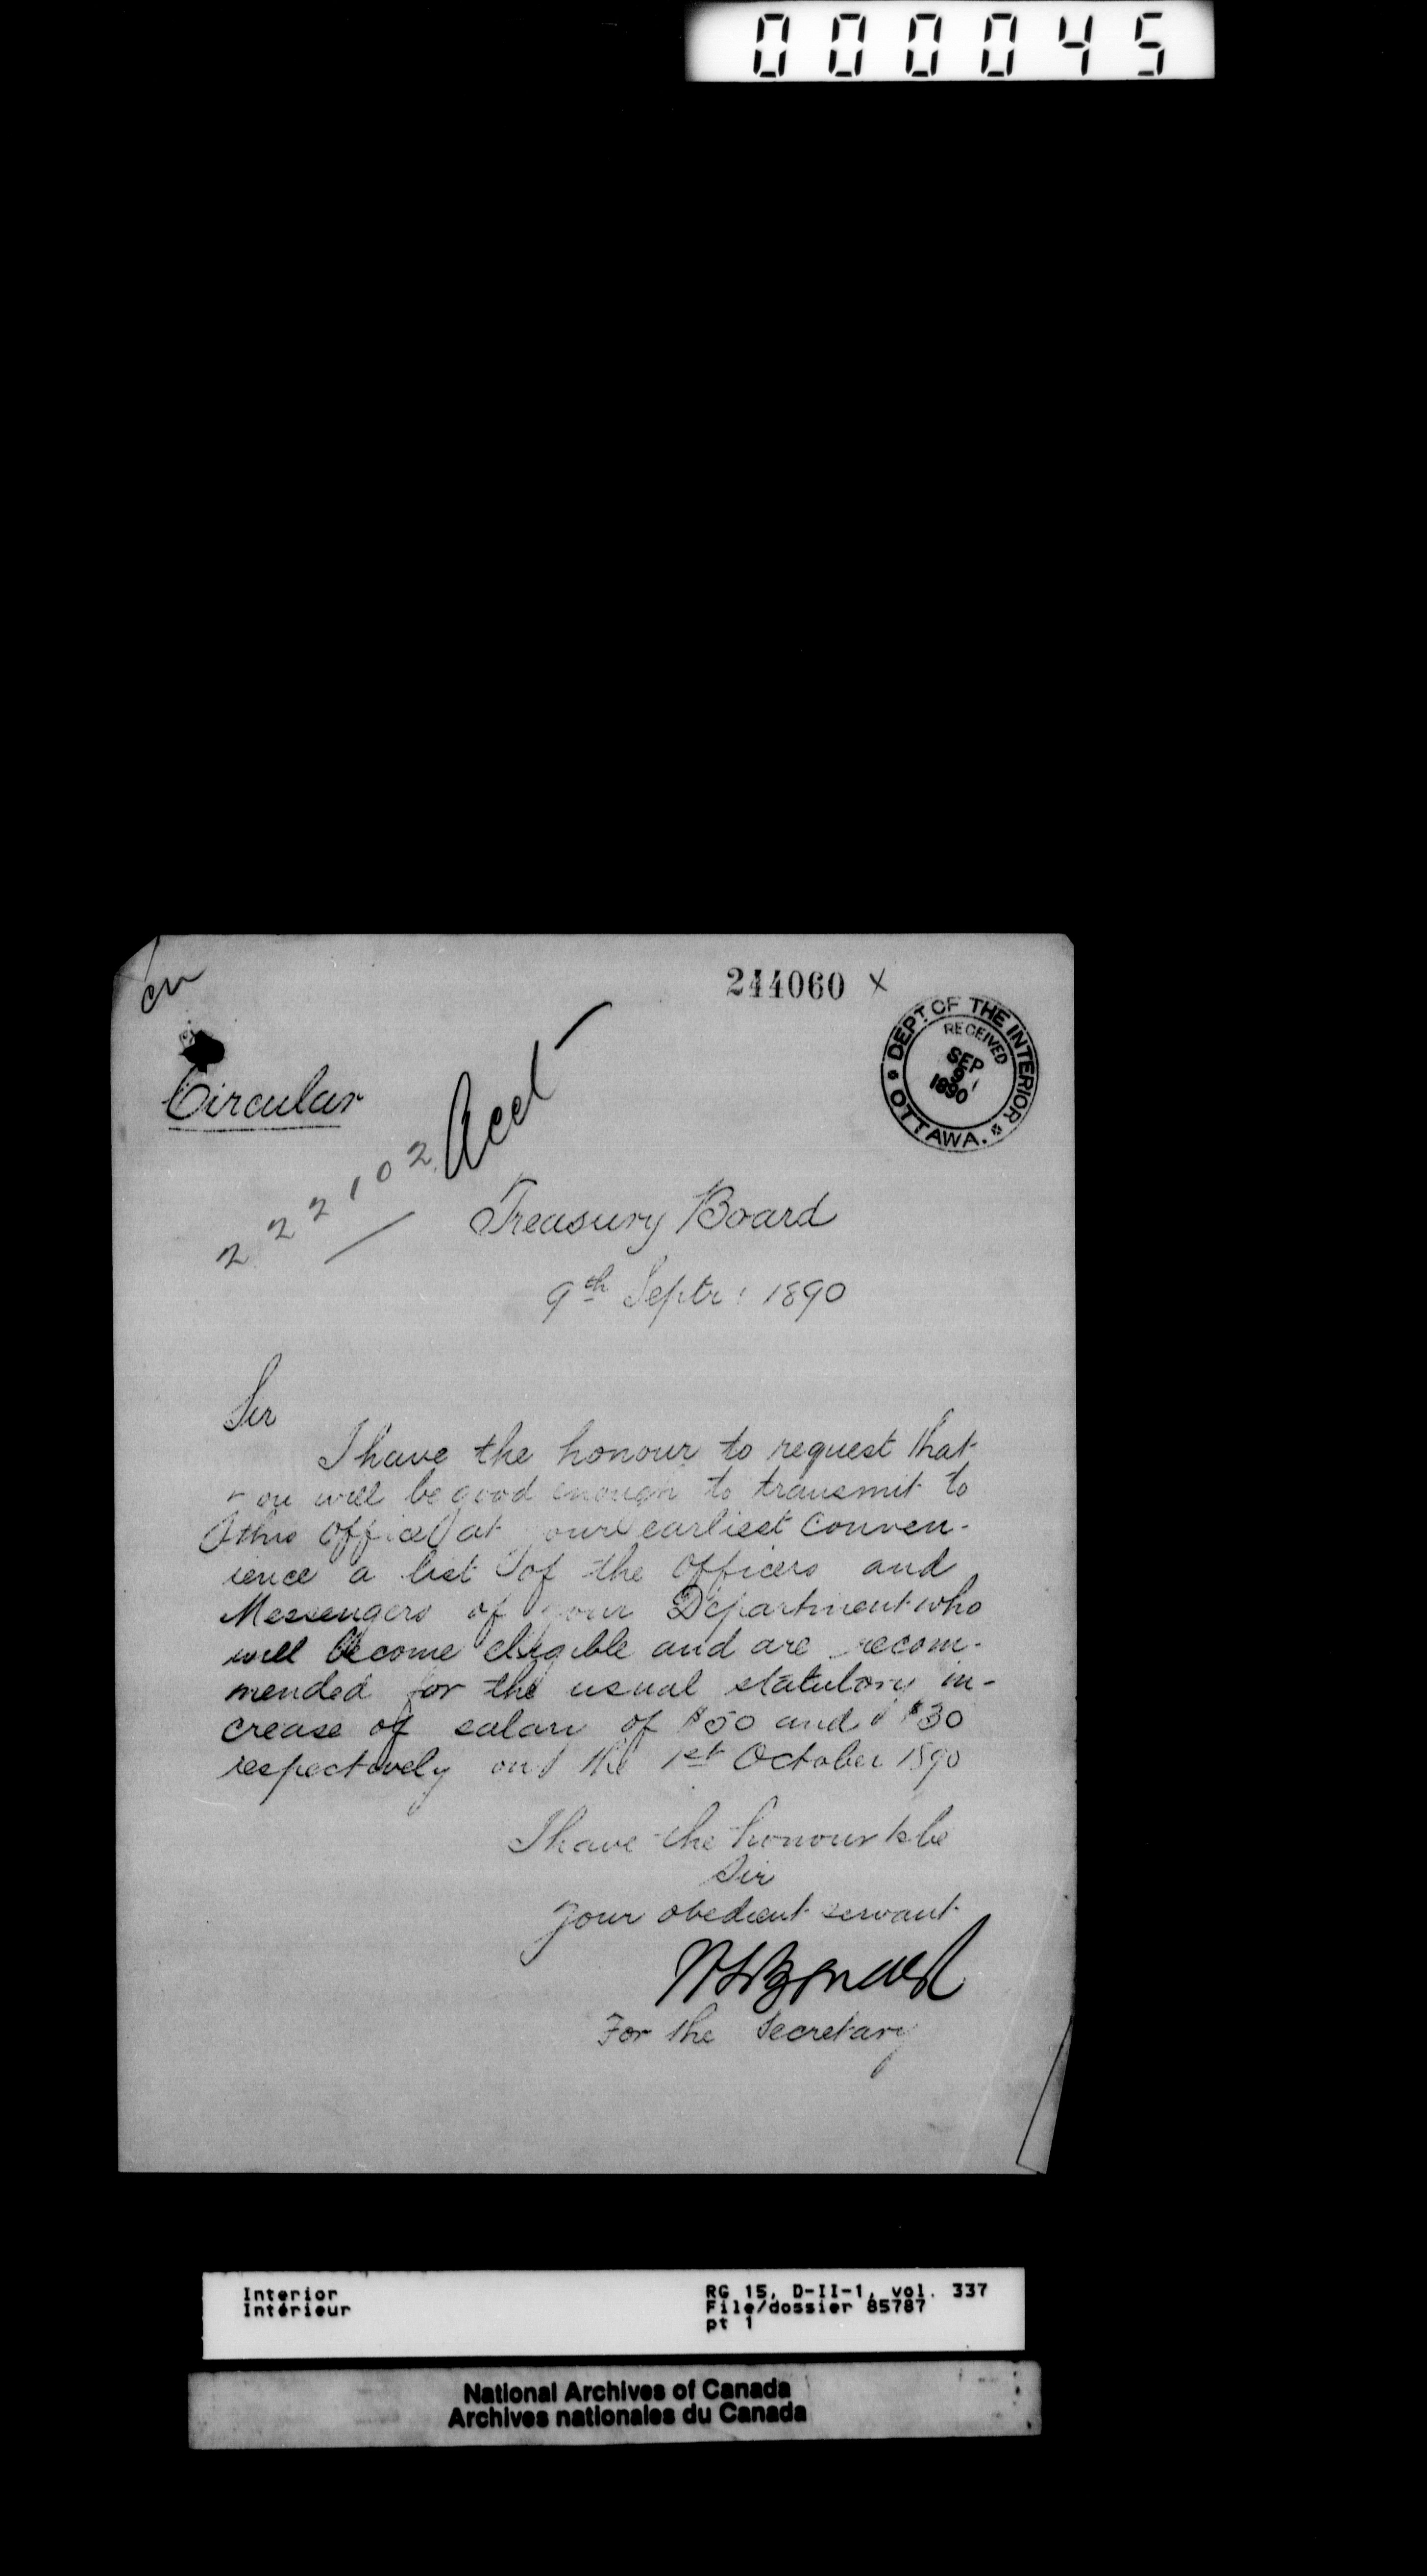 000045
244060 x
DEPT. OF THE INTERIOR
RECEIVED
SEP
9
1890
OTTAWA.
Circular
222102 Acct
Treasury Board
9th Septr: 1890
Sir
I have the honour to request that
you will be good enough to transmit to
this office at your earliest conven-
ience a list of the officers and
Messengers of your Department who
will become eligible and are recom-
mended for the usual statutory in-
crease of salary of $50 and $30
respectively on the 1st October 1890
I have the honour to be
Sir
Your obedient servant
For the Secretary
Interior
Intérieur
RG 15, D-II-1, vol. 337
File/dossier 85787
pt 1
National Archives of Canada
Archives nationales du Canada